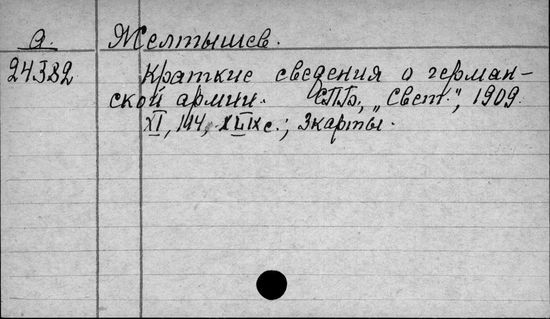 а. Желтышев.
24382 Краткие сведения о герман-
ской армии. СПб., „Свет.“, 1909.
XI, 144, XLIX с.; 3 карты.